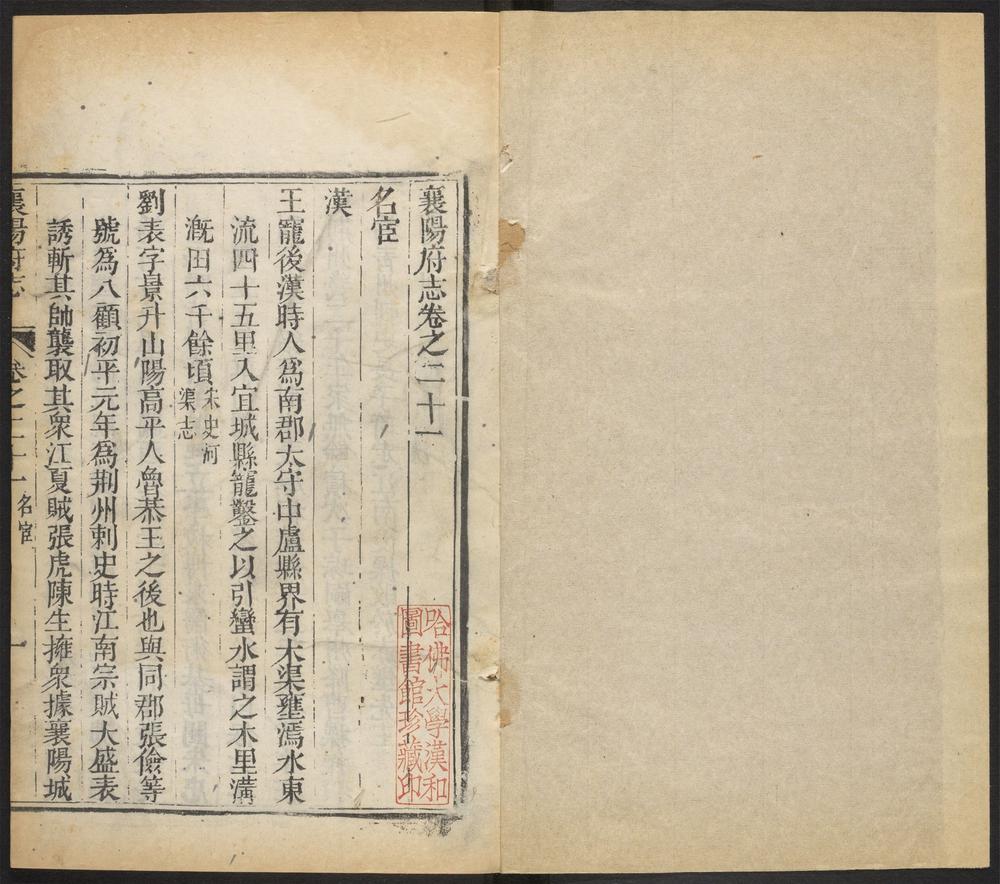 襄陽府志卷之二十一
名宦
漢
王寵後漢時人爲南郡太守中盧縣界有木渠壅漹水東
流四十五里入宜城縣寵鑿之以引蠻水謂之木里溝
漑田六千餘頃宋史河
渠志
劉表字景升山陽高平人魯恭王之後也與同郡張儉等
號爲八顧初平元年爲荆州刺史時江南宗賊大盛表
誘斬其帥襲取其衆江夏賊張虎陳生擁衆據襄陽城
襄陽府志
卷之二十一 名宦
一
哈佛大學漢和
圖書館珍藏印